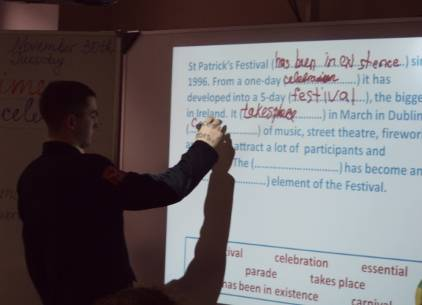 November 30th
Tuesday
St Patrick's Festival (has been in existence..) si
1996. From a one-day celebration .....) it has
developed into a 5-day (festival....), the bigge
in Ireland. It (takes place ..........) in March in Dublin
(....................) of music, street theatre, firewor
attract a lot of participants and
The (......................) has become an
..................) element of the Festival.
ival celebration essential
parade takes place
has been in existence carnival